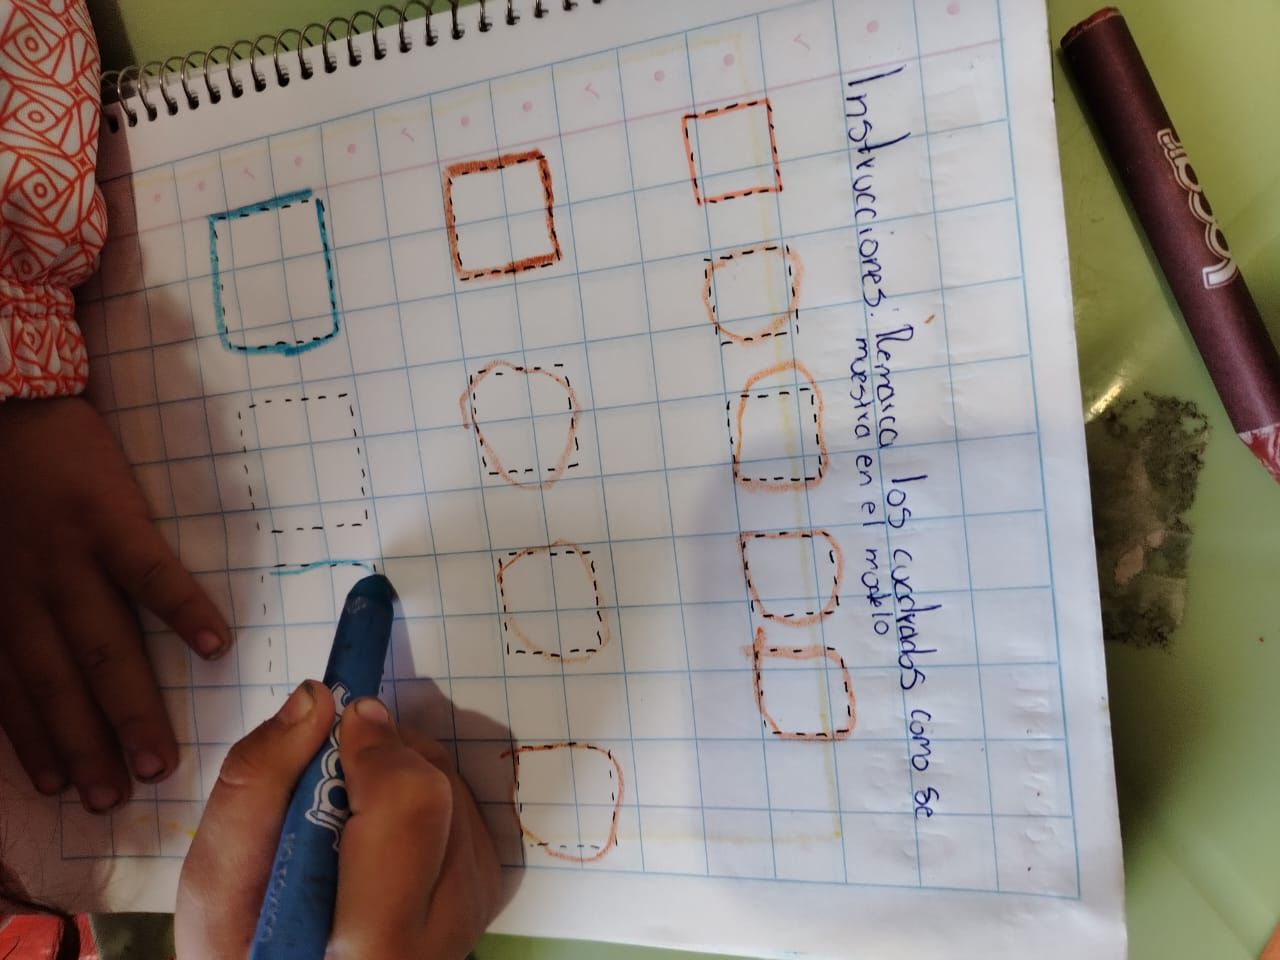 Instrucciones: Remarca los cuadrados como se
muestra en el modelo